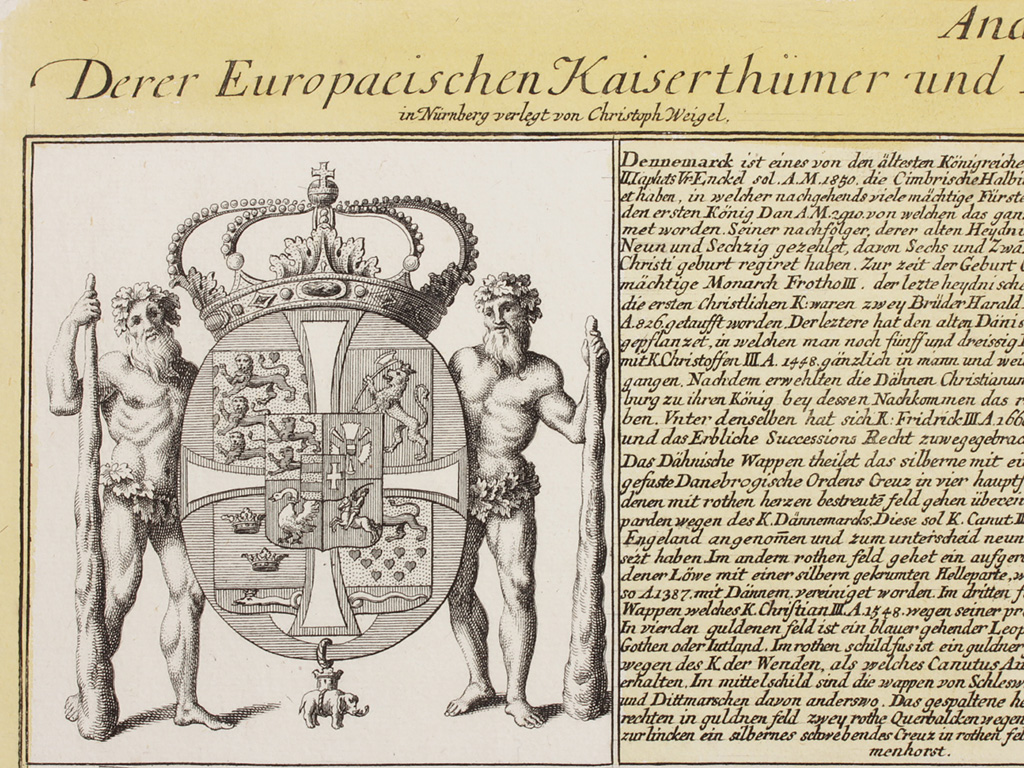 And
Derer Europaeischen Kaiserthümer und
in Nürnberg verlegt von Christoph Weigel.
Dennemarck ist eines von den ältesten Königreiche
sol. A.M. 1850. die Cimbrische Halbi
et haben, in welcher nachgehends viele mächtige Fürste
den ersten König Dan A.M. 2910. von welchen das gan
met worden. Seiner nachfolger, derer alten Heydni
Neun und Sechzig gezehlet, davon Sechs und Zwä
Christi geburt regiret haben. Zur zeit der Geburt
mächtige Monarch Frotho III. der lezte heydnische
die ersten Christlichen K: waren zwey Brüder Harald
A. 826. getaufft worden. Der leztere hat den alten Dänis
gepflanzet, in welchen man noch fünff und dreissig
mit K. Christoffen III. A. 1448. gänzlich in mann und wei
gangen. Nachdem erwehlten die Dähnen Christianum
burg zu ihren König bey dessen Nachkommen das r
ben. Vnter denselben hat sich K: Fridrick III. A. 166
und das Erbliche Successions Recht zuwegegebrac
Das Dähnische Wappen theilet das silberne mit ei
gefaste Danebrogische Ordens Creuz in vier hauptf
denen mit rothen herzen bestreute feld gehen übe
parden wegen des K. Dännemarcks. Diese sol K. Canut
Engeland angenom̅en und zum unterscheid neun
sezt haben. Im andern rothen feld gehet ein aufger
dener Löwe mit einer silbern gekrumten Helleparte, w
so A. 1387. mit Dännem. vereiniget worden. Im dritten f
Wappen welches K. Christian III. A. 1548. wegen seiner pr
In vierden guldenen feld ist ein blauer gehender Leop
Gothen oder Iutland. Im rothen schildfus ist ein guldner
wegen des K. der Wenden, als welches Canutus A
erhalten. Im mittelschild sind die wappen von Schlesw
und Dittmarschen davon anderswo. Das gespaltene h
rechten in guldnen feld zwey rothe Querbalcken wegen
zur lincken ein silbernes schwebendes Creuz in rothen fel
menhorst.